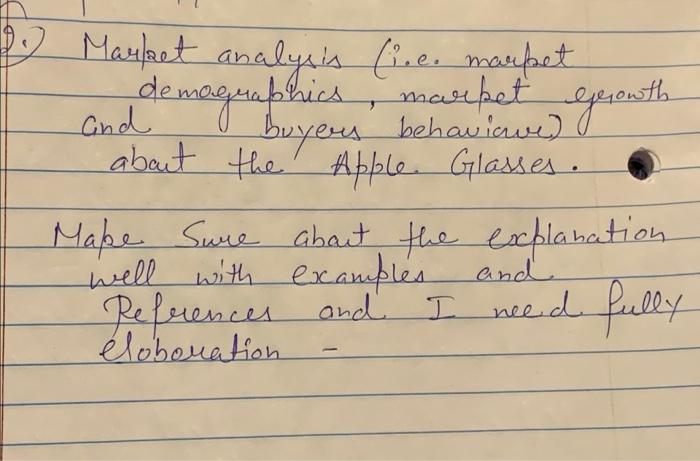 Q.) Market analysis (i.e. market
demographics, market growth
and buyers behaviour)
about the Apple Glasses.
Make Sure about the explanation
well with examples and
References and I need fully
eloboration -